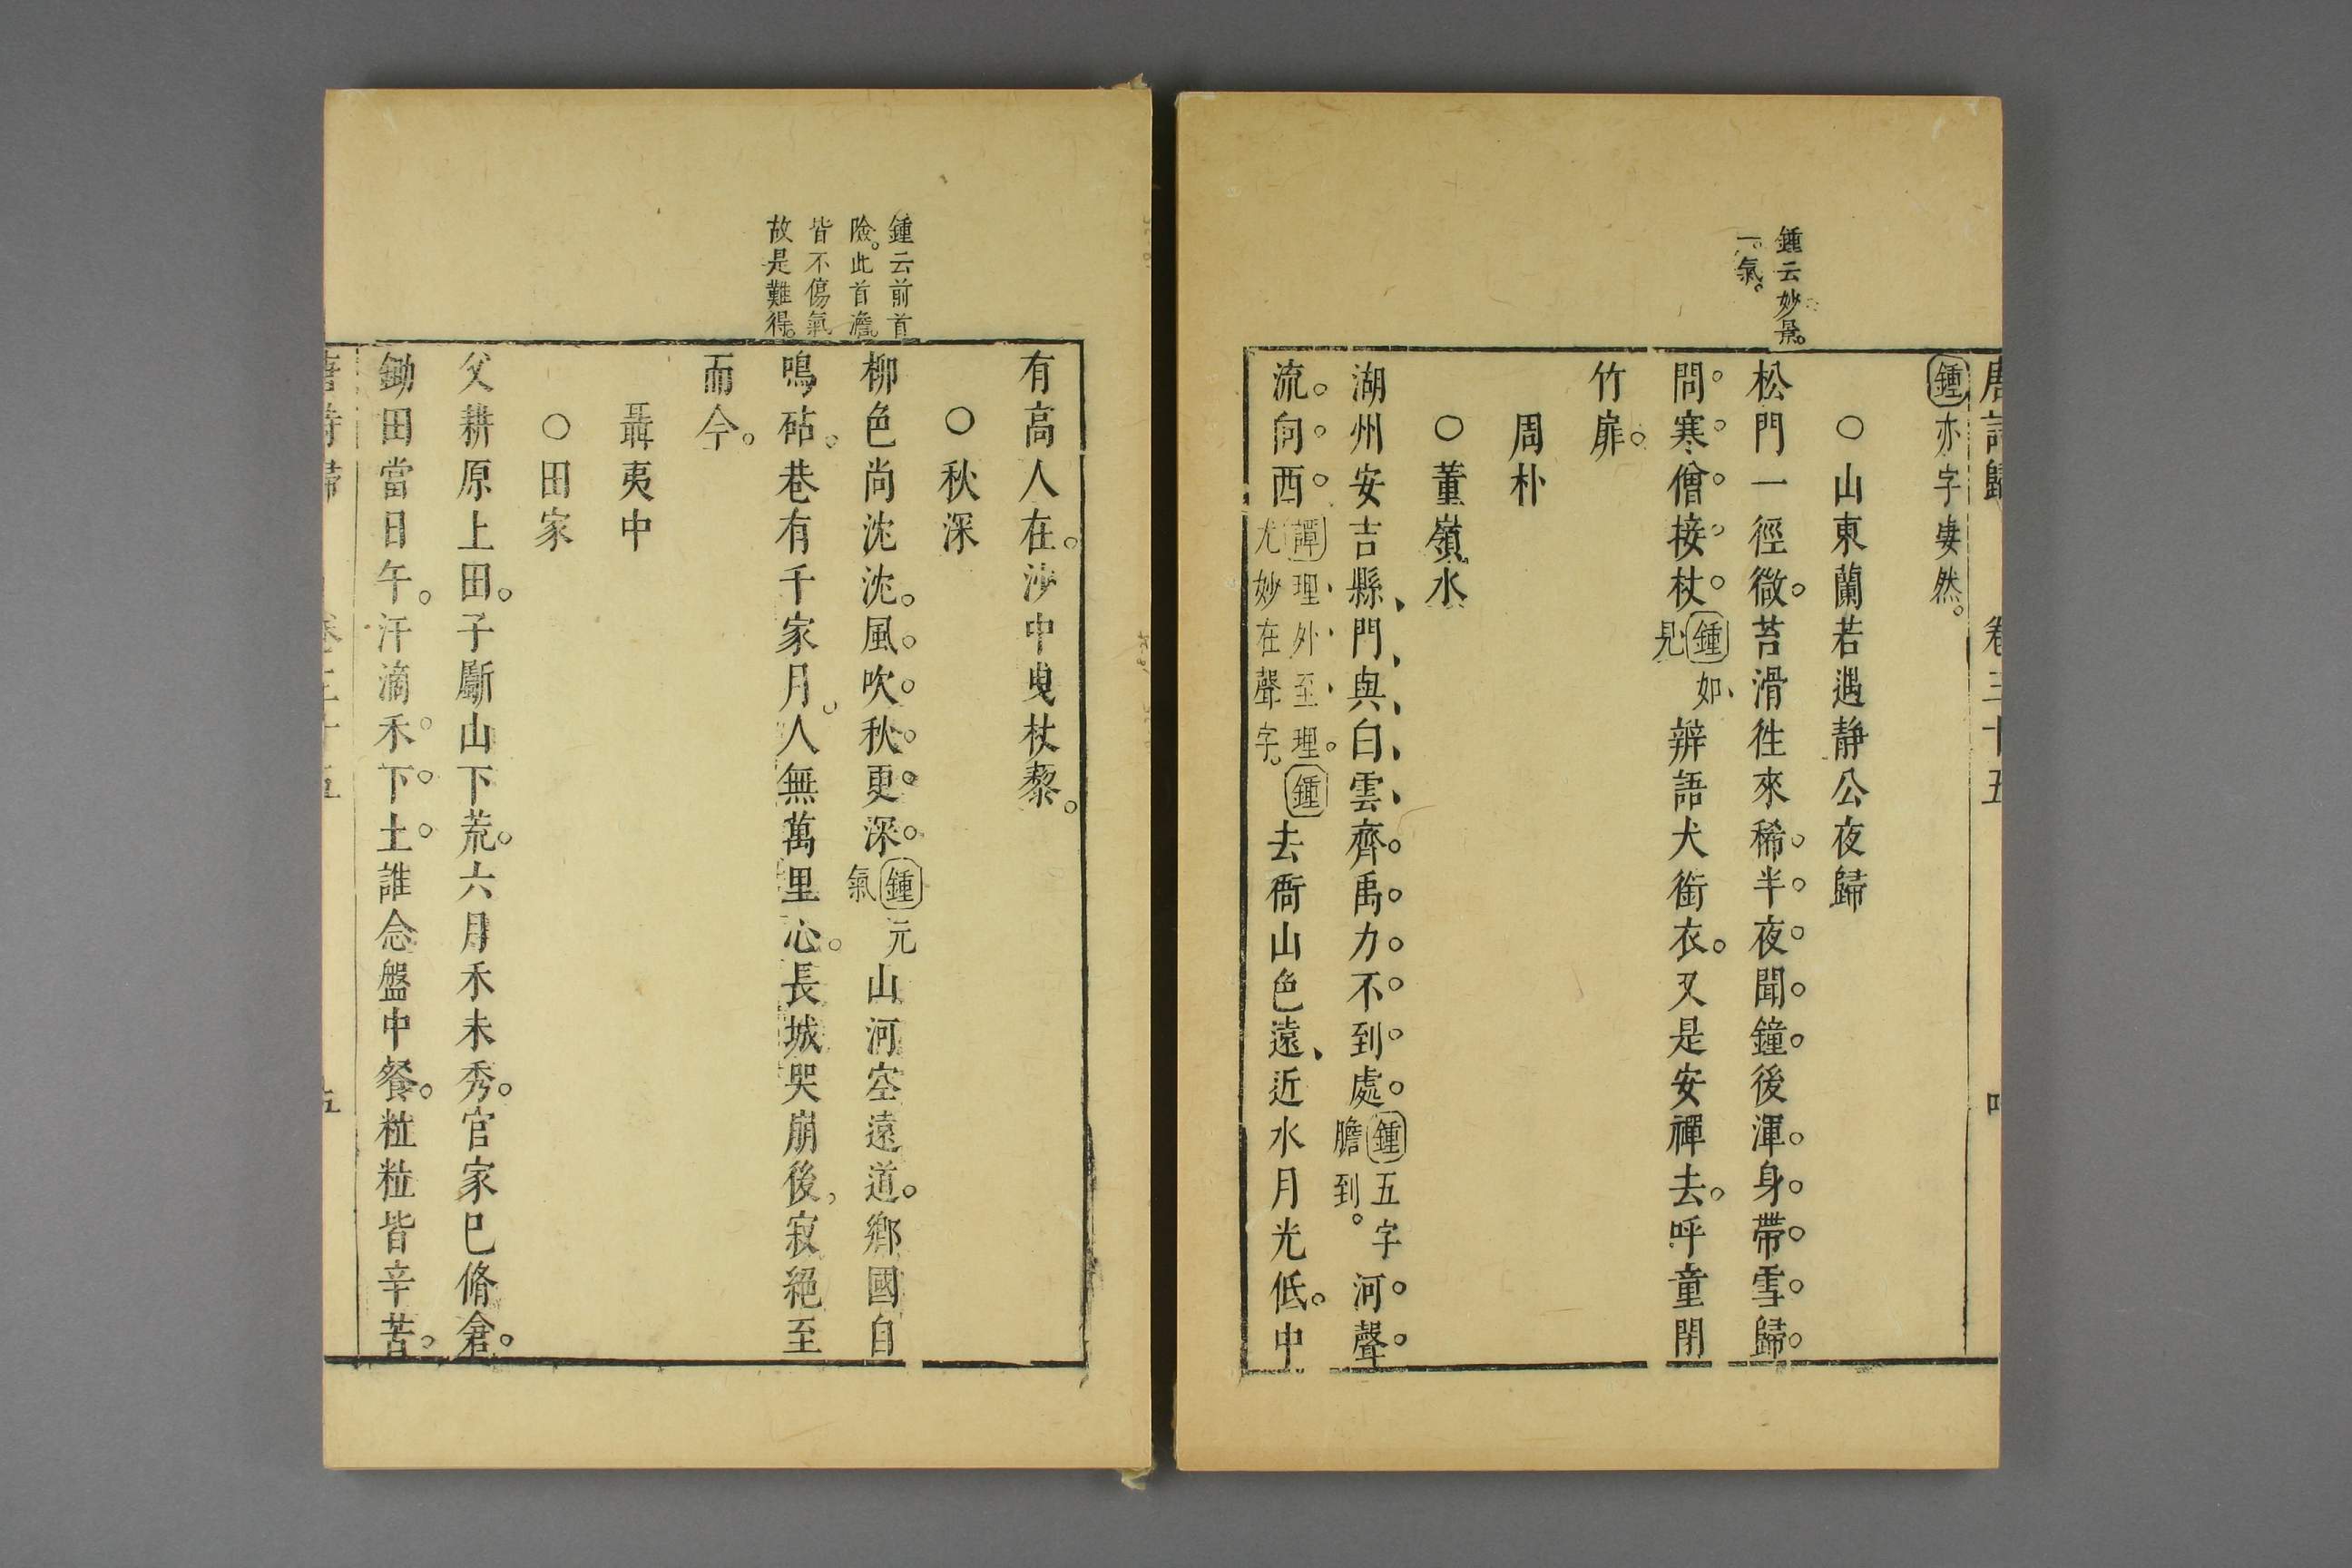 唐詩歸 卷三十五
鍾亦字妻然。
○山東蘭若遇静公夜歸
鍾云妙景。
一氣。
松門一徑微。苔滑徃來稀。半夜聞鐘後渾身帶雪歸。
問寒僧接杖。鍾如見辨語犬銜衣。又是安禪去。呼童閉
竹扉。
周朴
○董嶺水
湖州安吉縣、門與白雲齊。禹力不到處。鍾五字膽到。河聲
流向西。譚理外至理。尤妙在聲字。鍾去衙山色遠、近水月光低。中
有高人在。沙中曳杖藜。
○秋深
鍾云前首
險。此首澹。
皆不傷氣
故是難得。
柳色尚沈沈。風吹秋更深。鍾元氣山河空遠道。鄉國自
鳴砧。巷有千家月。人無萬里心。長城哭崩後,寂絕至
而今。
聶夷中
○田家
父耕原上田。子斸山下荒。六月禾未秀。官家巳脩倉。
鋤田當日午。汗滴禾下土。誰念盤中餐。粒粒皆辛苦。
唐詩歸 卷三十五 五